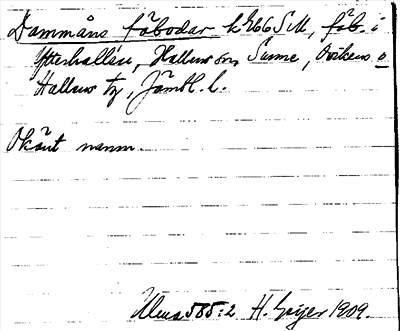 Dammåns fäbodar k 766 SM, fäb. i
Ytterhallen, Hallens sn, Sunne, Ovikens o
Hallens tg, Jämtl. l.
Okänt namn.
Ulma 585:2 H. Geijer 1909.